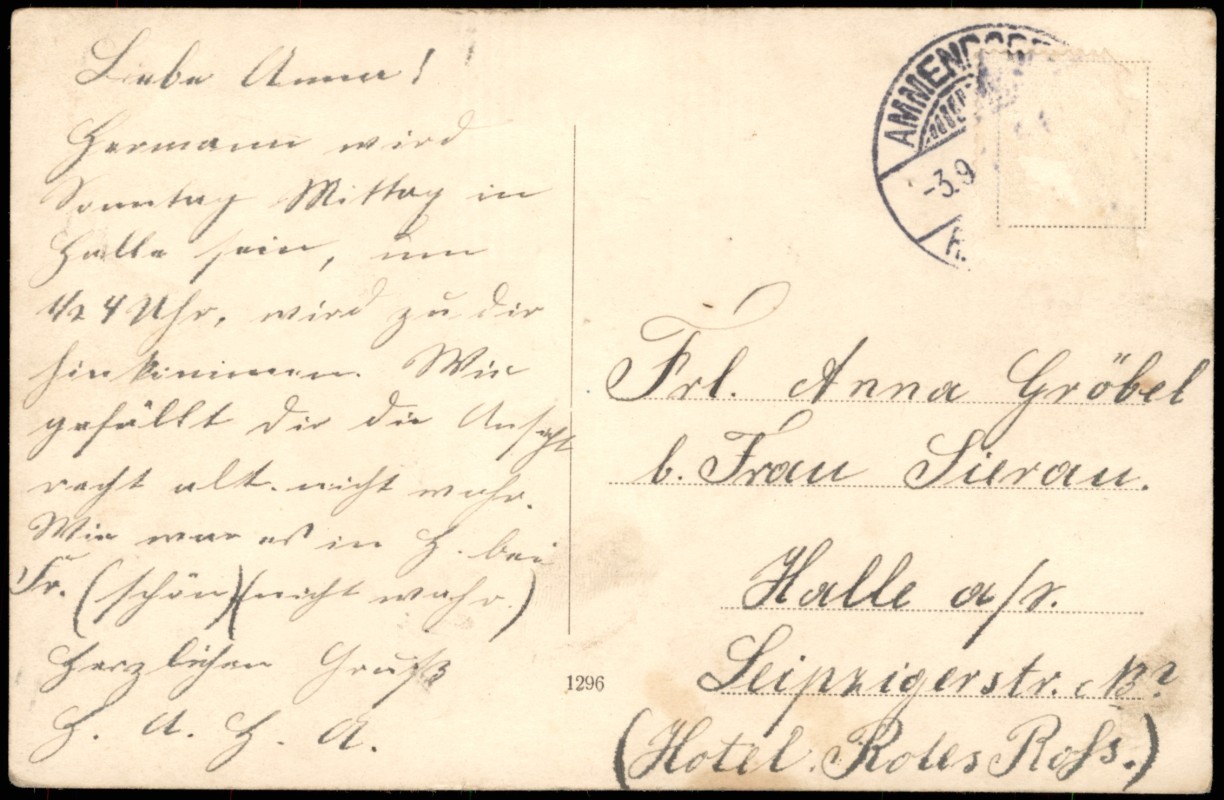 Liebe Anna!
Hermann wird
Sonntag Mittag in
Halle sein, um
1/2 4 Uhr, wird zu dir
hinkommen. Wie
gefällt dir die Ansicht
recht alt. nicht wahr.
Wie war es in H. bei
Fr. (schön)(nicht wahr.)
Herzlichen Gruß
H. A. H. A.
AMMENDORF
-3.9
Frl. Anna Gröbel
b. Frau Sierau.
Halle a/s.
Leipzigerstr. No
(Hotel. Rotes Roß.)
1296